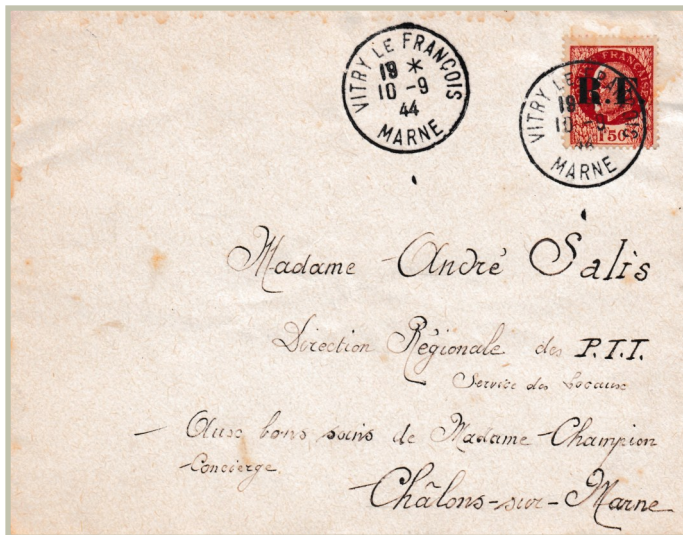 VITRY LE FRANÇOIS
19 *
10 -9
44
MARNE
FRANÇAIS
R.F
1F50
VITRY LE FRANÇOIS
19
10 -9
44
MARNE
Madame André Salis
Direction Régionale des P.T.T.
Service des Locaux
— Aux bons soins de Madame Champion
Concierge
Châlons-sur-Marne